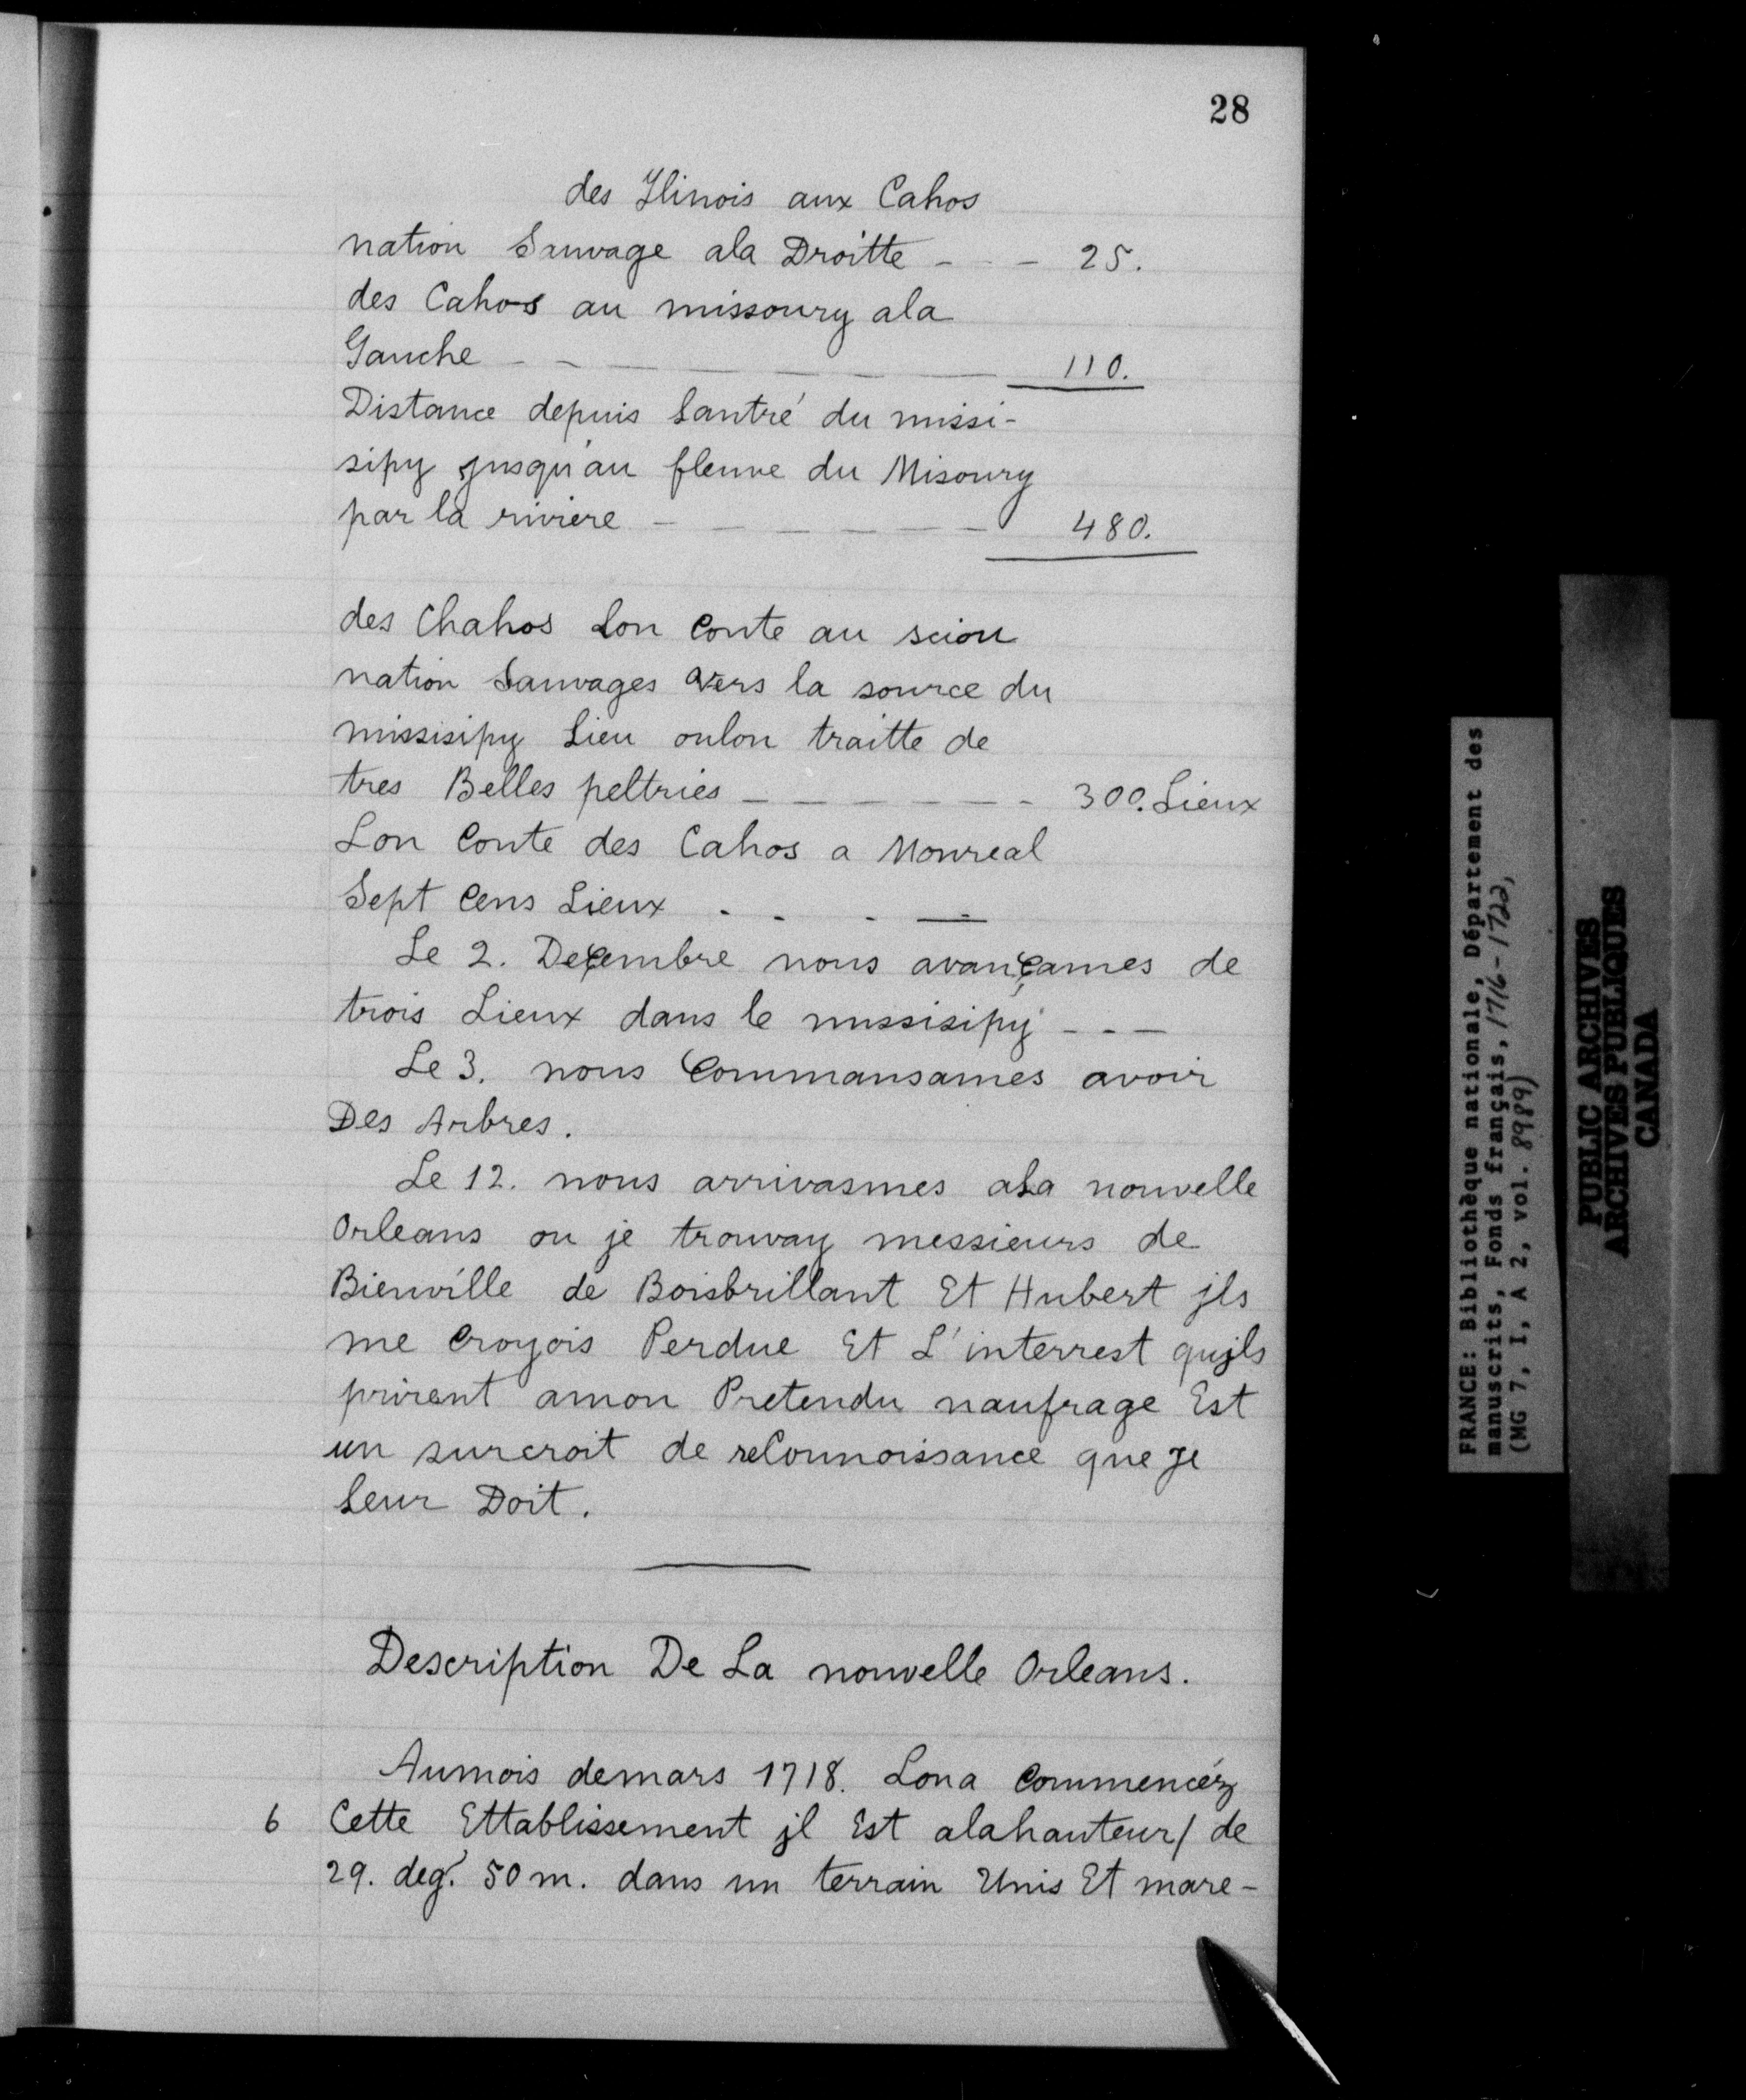 28
des Ilinois aux Cahos
nation Sauvage ala Droitte - - - 25.
des Cahos au missoury ala
Gauche - - - - - - - 110.
Distance depuis Lantré du missi-
sipy jusqu'au fleuve du Misoury
par la riviere - - - - - - 480.
des Chahos Lon Conte au sciou
nation Sauvages Vers la source du
missisipy Lieu oulon traitte de
tres Belles peltries - - - - - - 300. Lieux
Lon Conte des Cahos a Monreal
Sept Cens Lieux - - - -
Le 2. Decembre nous avançames de
trois Lieux dans le missisipy - - -
Le 3. nous Commansames avoir
Des Arbres.
Le 12. nous arrivasmes aLa nouvelle
Orleans ou je trouvay messieurs de
Bienville de Boisbrillant Et Hubert jls
me Croyois Perdue Et L'interrest qujls
prirent amon Pretendu naufrage Est
un surcroit de reConnoissance que Je
Leur Doit.
Description De La nouvelle Orleans.
Aumois demars 1718. Lona Commencéz
6 Cette Ettablissement jl Est alahauteur/ de
29. deg. 50 m. dans un terrain Unis Et mare-
FRANCE: Bibliothèque nationale, Département des
manuscrits, Fonds français, 1716-1722,
(MG 7, I, A 2, vol. 8989)
PUBLIC ARCHIVES
ARCHIVES PUBLIQUES
CANADA